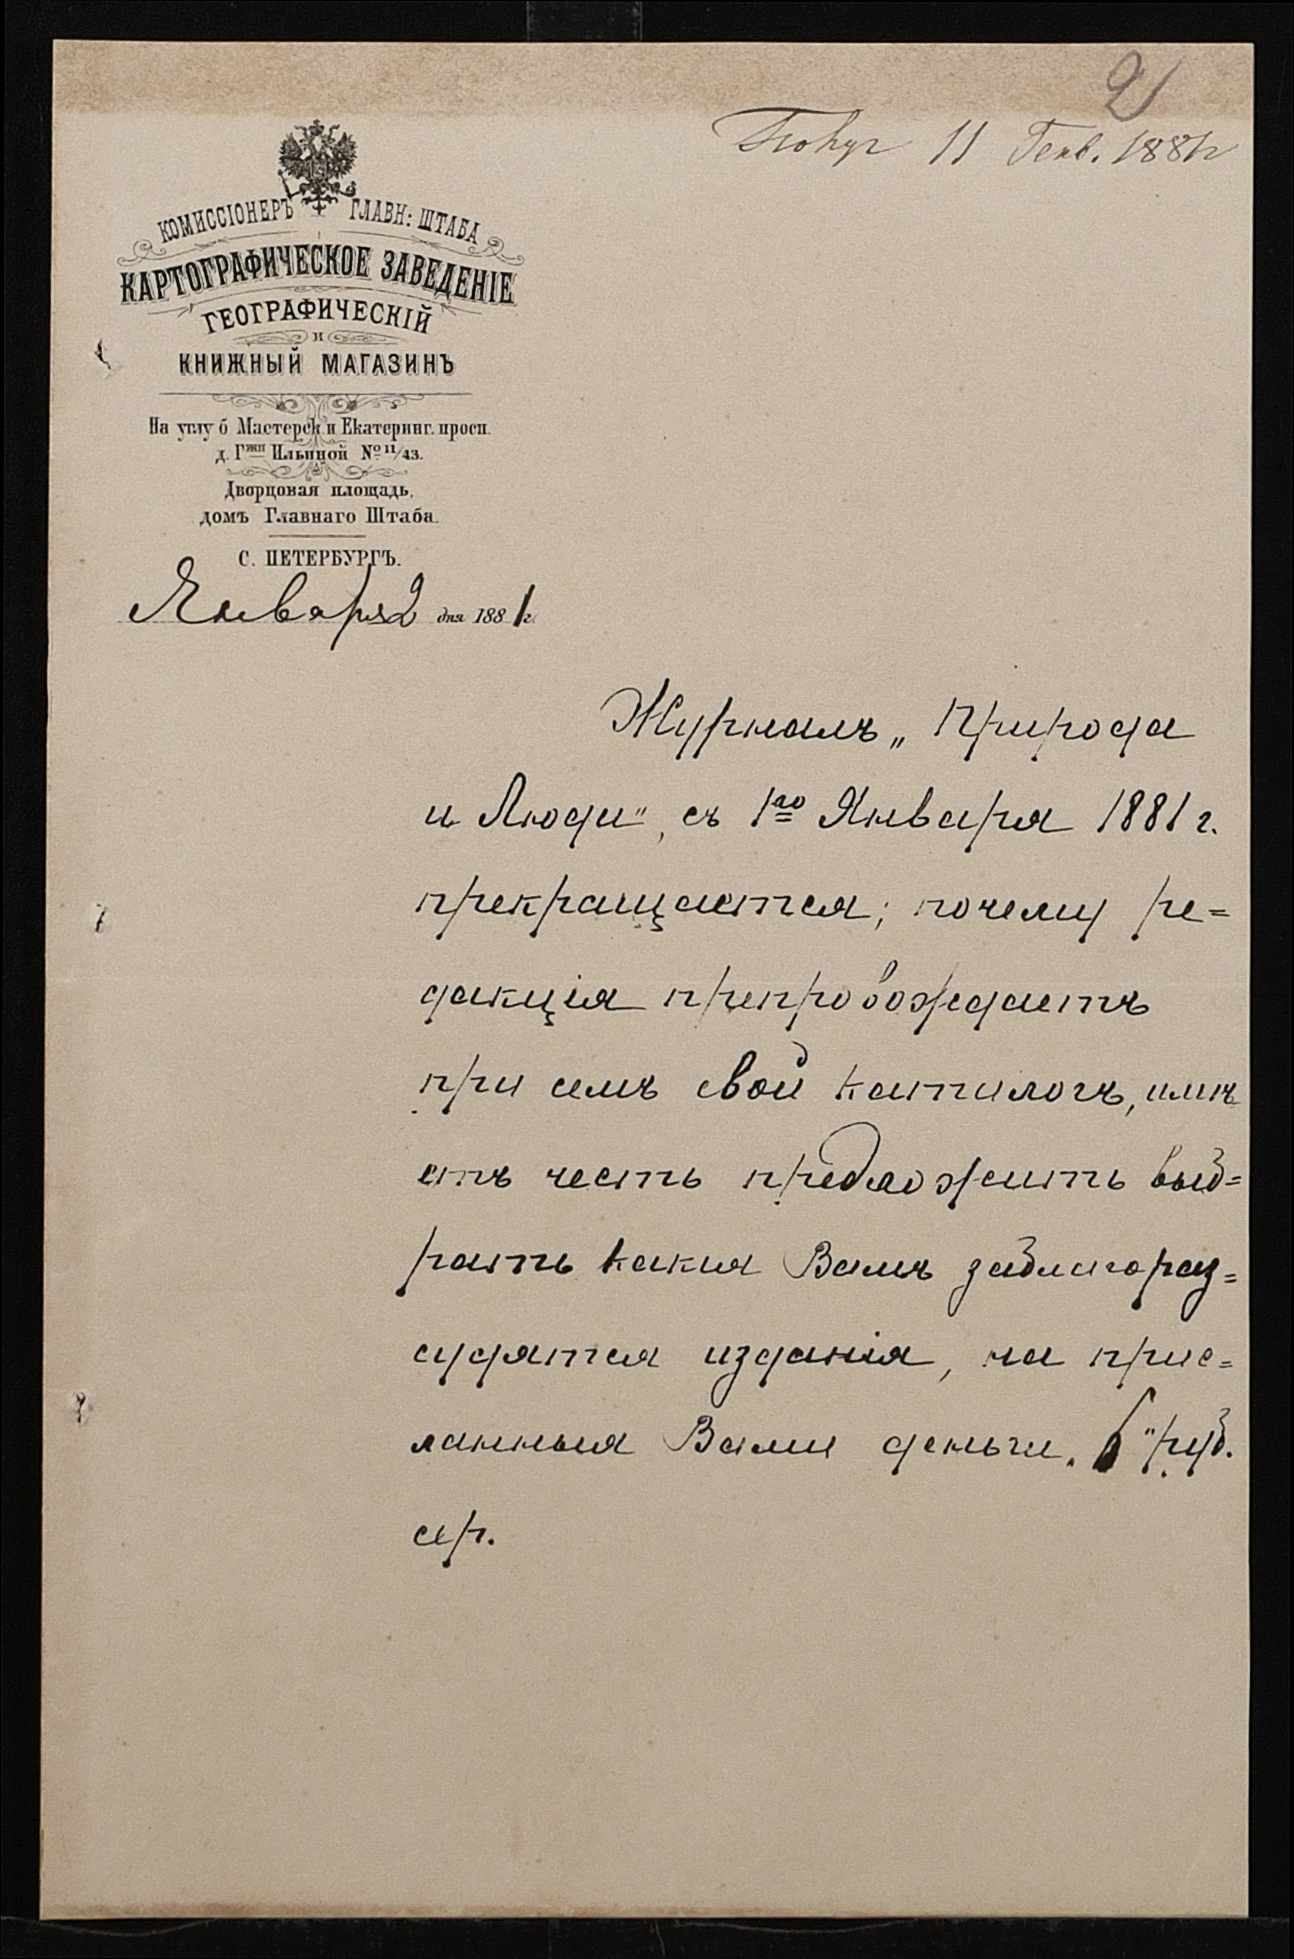 2
Получ 11 Генв. 1881 г
КОМИССІОНЕРЪ ГЛАВН: ШТАБА
КАРТОГРАФИЧЕСКОЕ ЗАВЕДЕНІЕ
ГЕОГРАФИЧЕСКІЙ
И
КНИЖНЫЙ МАГАЗИНЪ
На углу б Мастерск и Екатеринг. просп.
д. Гжи Ильиной № 11/43.
Дворцовая площадь,
домъ Главнаго Штаба.
С. ПЕТЕРБУРГЪ.
Января 2 дня 1881 г.
Журналъ „Природа
и Люди", съ 1го Января 1881 г.
прекращается; почему ре=
дакція препровождаетъ
при семъ свой каталогъ, имѣ
етъ честь предложить выб=
рать какія Вамъ заблагораз=
судятся изданія, на прис=
ланныя Вами деньги. 6 "руб.
сер.